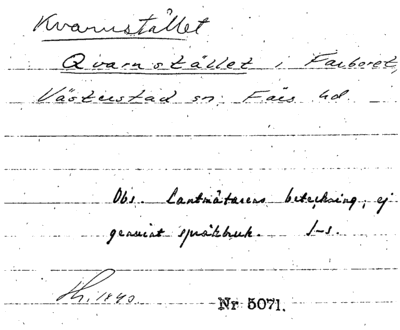 Kvarnstället
Qvarnstället i Farberet,
Västerstad sn. Färs hd.
Obs. Lantmätarens beteckning, ej
genuint språkbruk. I-s.
1840. Nr 5071.